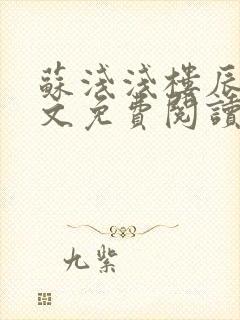 蘇淺淺樓辰
文免費閱讀
九紫